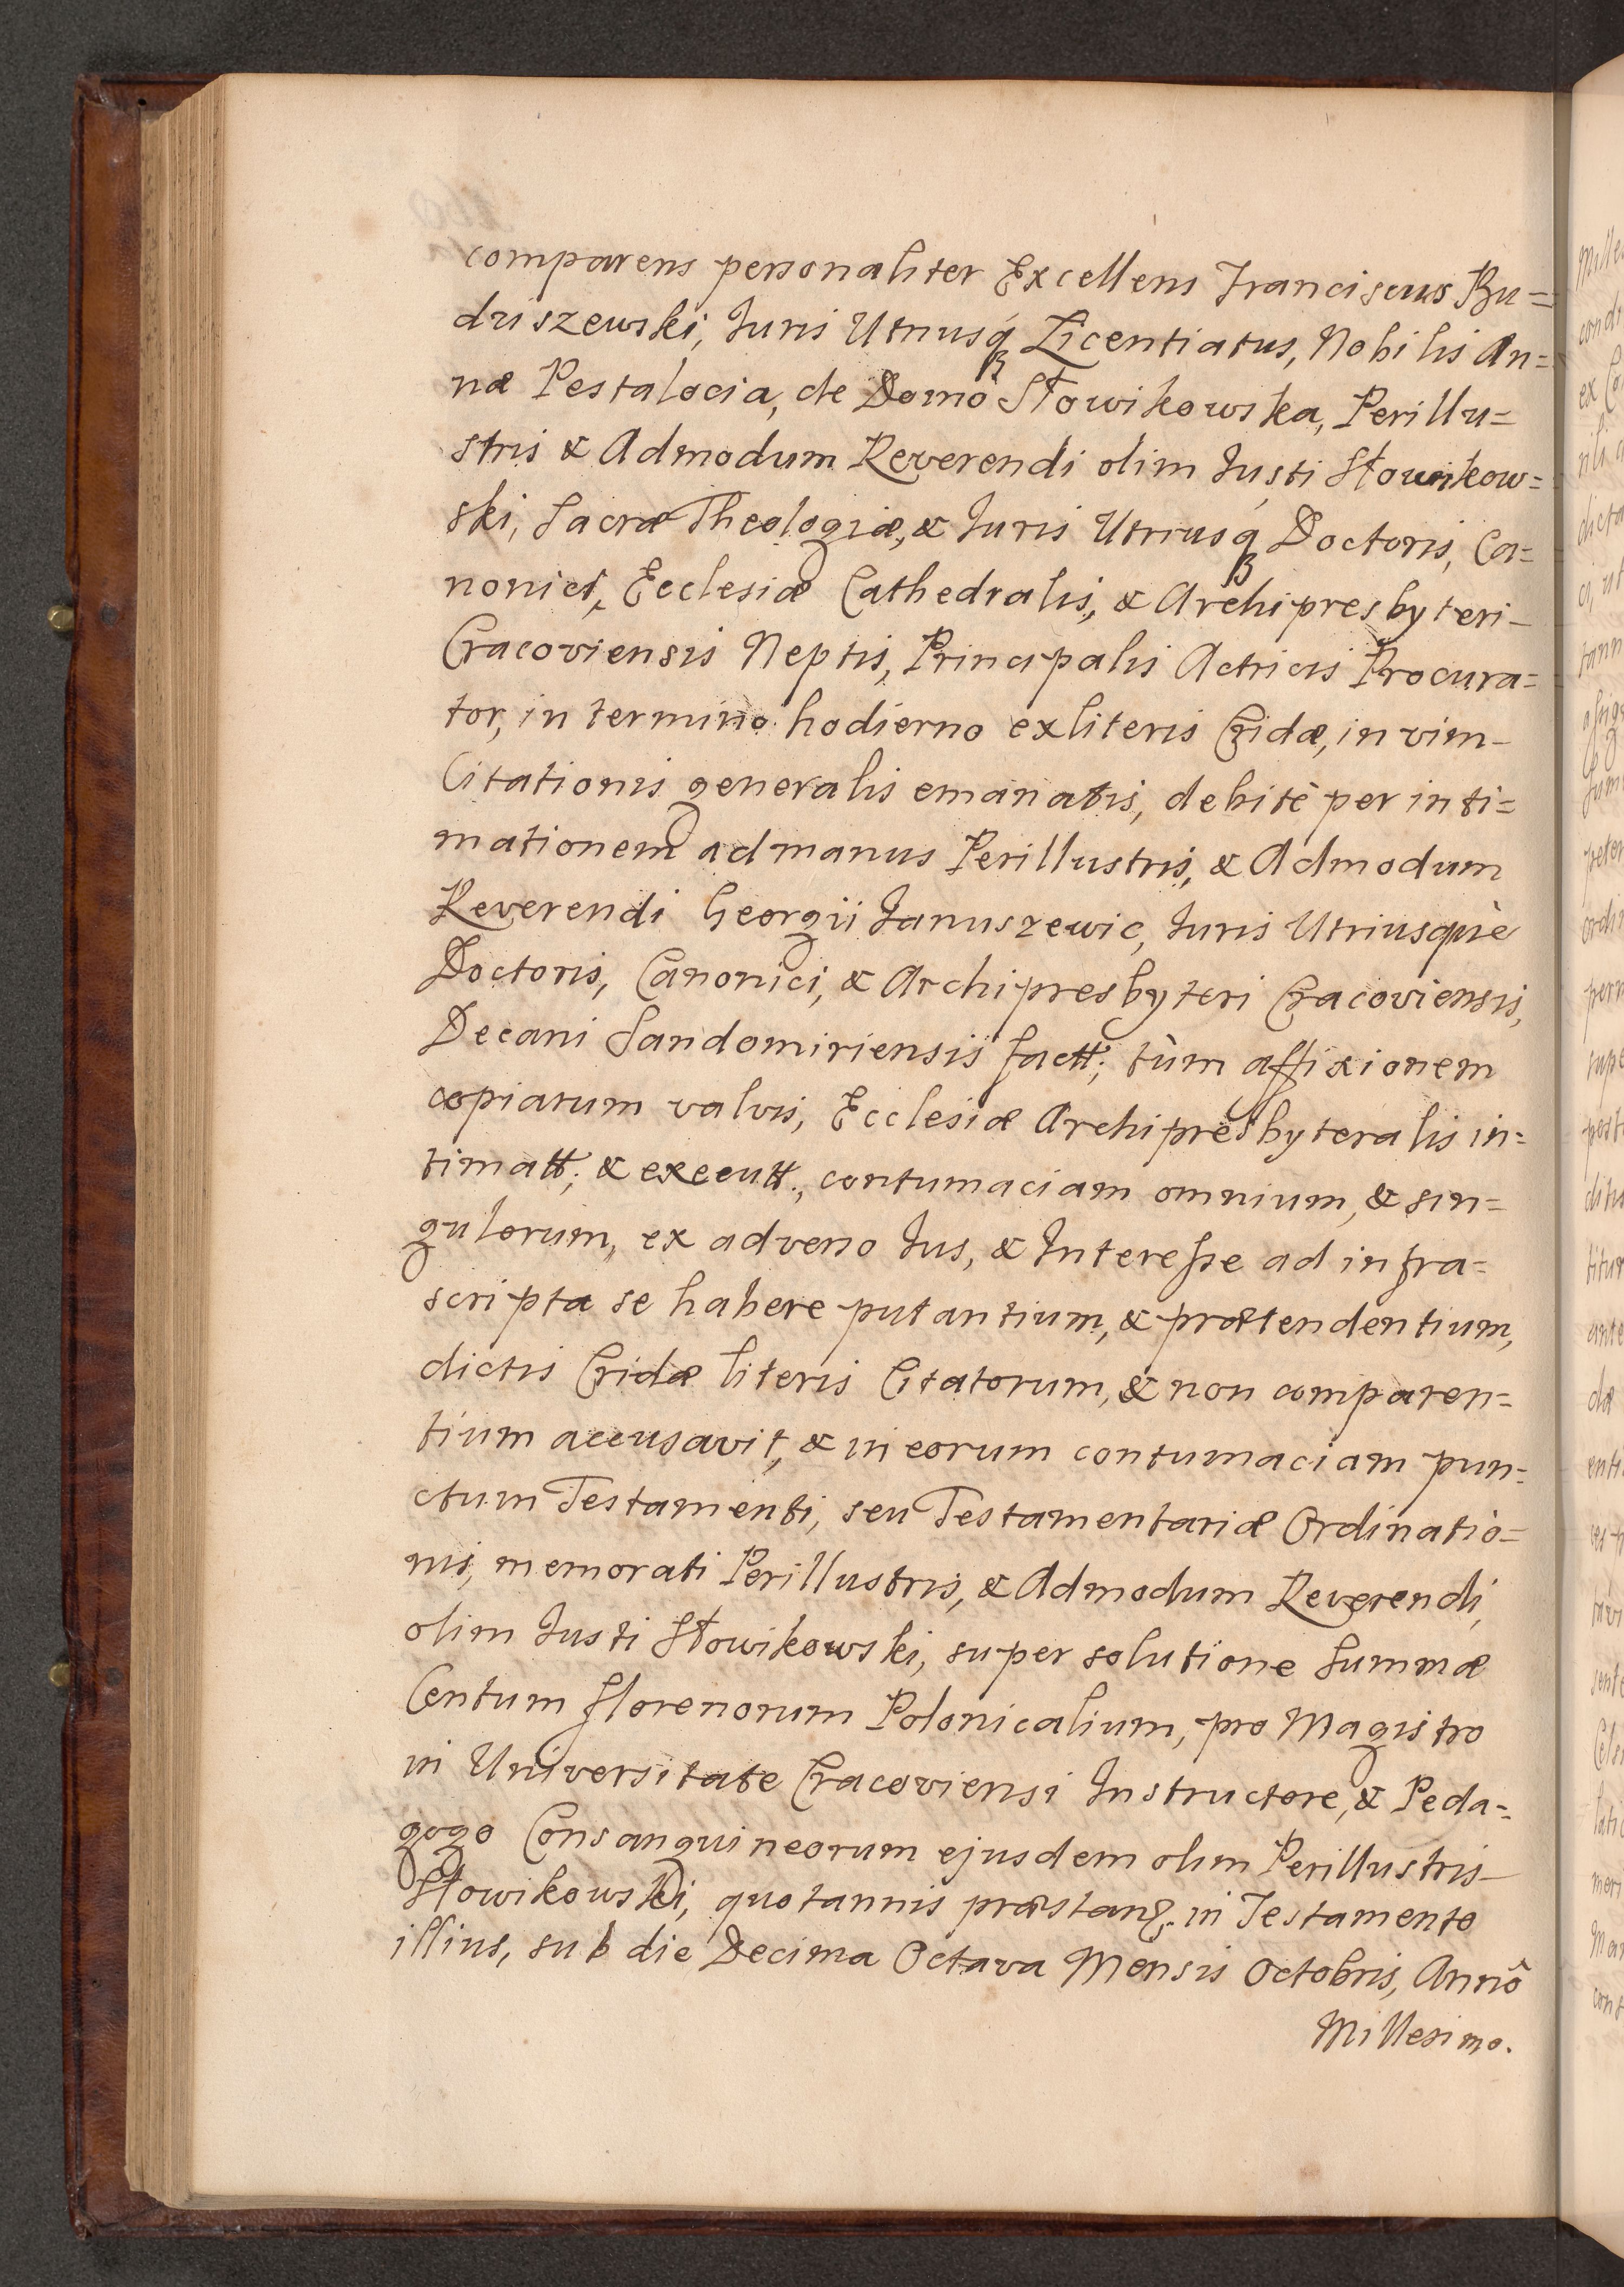 comparens personaliter Excellens Franciscus Bu=
driszewski, Juris Utriusq́ Licentiatus, Nobilis An=
næ Pestalocia, de Domo Słowikowska, Perillu=
stris & Admodum Reverendi olim Justi Słowikow=
ski, Sacræ Theologiæ, & Juris Utriusq́ Doctoris, Ca=
nonici, Ecclesiæ Cathedralis, & Archipresbyteri
Cracoviensis Neptis, Principalis Actricis Procura=
tor, in termino hodierno ex literis Cridæ, in vim
Citationis generalis emanatis, debitè per inti=
mationem ad manus Perillustris, & Admodum
Reverendi Georgii Januszewic, Juris Utriusquè
Doctoris, Canonici, & Archipresbyteri Cracoviensis,
Decani Sandomiriensis factt; tùm affixionem
copiarum valvis, Ecclesiæ Archipresbyteralis in=
timatt; & executt., contumaciam omnium, & sin=
gulorum, ex adverso Jus, & Interesse ad infra=
scripta se habere putantium, & prætendentium,
dictis Cridæ literis Citatorum, & non comparen=
tium accusavit, & in eorum contumaciam pun=
ctum Testamenti, seu Testamentariæ Ordinatio=
nis, memorati Perillustris, & Admodum Reverendi,
olim Justi Słowikowski, super solutione Summæ
Centum florenorum Polonicalium, pro Magistro
in Universitate Cracoviensi Instructore, & Peda=
gogo Consanguineorum ejusdem olim Perillustris
Słowikowski, quotannis præstan. in Testamento
illius, sub die Decima Octava Mensis Octobris, Annô
Millesimo.